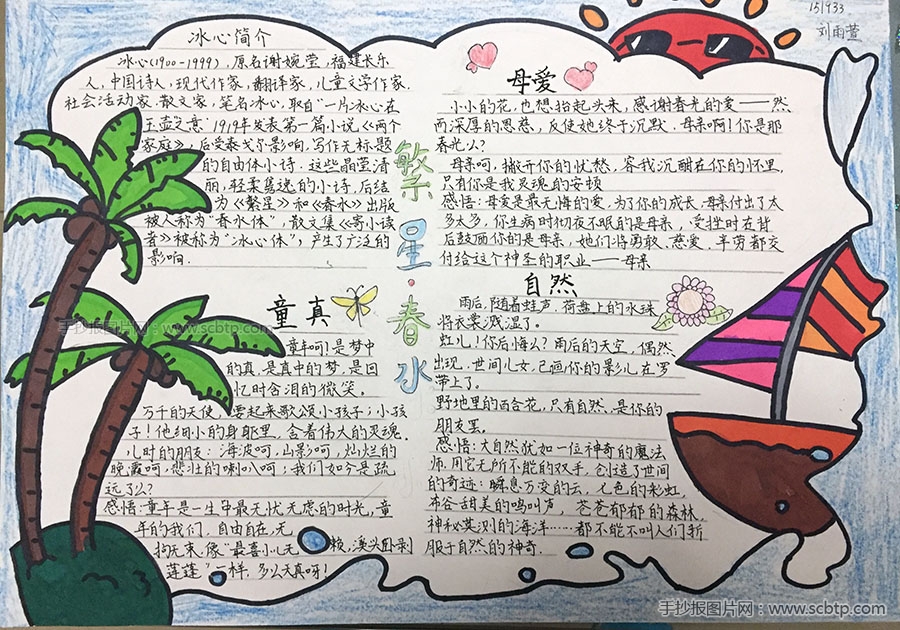 151933
刘雨萱
冰心简介
冰心(1900-1999),原名谢婉莹,福建长乐
人,中国诗人,现代作家,翻译家,儿童文学作家,
社会活动家,散文家,笔名冰心,取自"一片冰心在
玉壶之意"1919年发表第一篇小说《两个
家庭》,后受泰戈尔影响,写作无标题
的自由体小诗.这些晶莹清
丽,轻柔隽逸的小诗,后结
为《繁星》和《春水》出版
被人称为"春水体",散文集《寄小读
者》被称为"冰心体",产生了广泛的
影响.
繁星·春水
童真
童年呵!是梦中
的真,是真中的梦,是回
忆时含泪的微笑.
万千的天使,要起来歌颂小孩子;小孩
子!他细小的身躯里,含着伟大的灵魂.
儿时的朋友:海波呵,山影呵,灿烂的
晚霞呵,悲壮的喇叭呵;我们如今是疏
远了么?
感悟:童年是一生中最无忧无虑的时光,童
年的我们,自由自在,无
拘无束,像"最喜小儿无赖,溪头卧剥
莲蓬"一样,多么天真呀!
母爱
小小的花,也想抬起头来,感谢春光的爱——然
而深厚的恩慈,反使她终于沉默.母亲啊!你是那
春光么?
母亲呵,撇开你的忧愁,容我沉酣在你的怀里,
只有你是我灵魂的安顿
感悟:母爱是最无悔的爱,为了你的成长,母亲付出了太
多太多,你生病时彻夜不眠的是母亲,受挫时在背
后鼓励你的是母亲,她们将勇敢、慈爱、辛劳都交
付给这个神圣的职业——母亲
自然
雨后,随着蛙声,荷盘上的水珠
将衣裳溅湿了。
虹儿!你后悔么?雨后的天空,偶然
出现,世间儿女,已画你的影儿在罗
带上了。
野地里的百合花,只有自然,是你的
朋友罢.
感悟:大自然犹如一位神奇的魔法
师,用它无所不能的双手,创造了世间
的奇迹:瞬息万变的云,七色的彩虹,
布谷甜美的鸣叫声,苍苍郁郁的森林,
神秘莫测的海洋……都不能不叫人们折
服于自然的神奇.
手抄报图片网:www.scbtp.com
手抄报图片网:www.scbtp.com